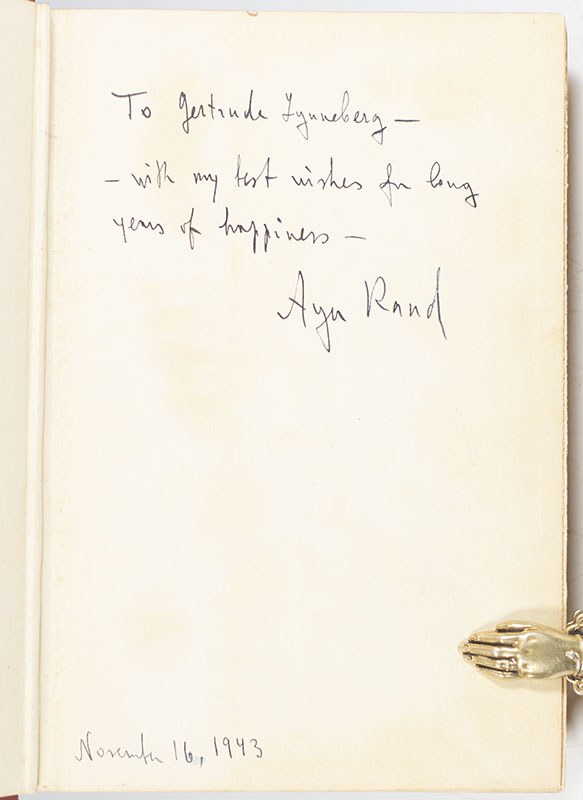 To Gertrude Lynneberg —
— with my best wishes for long
years of happiness —
Ayn Rand
November 16, 1943